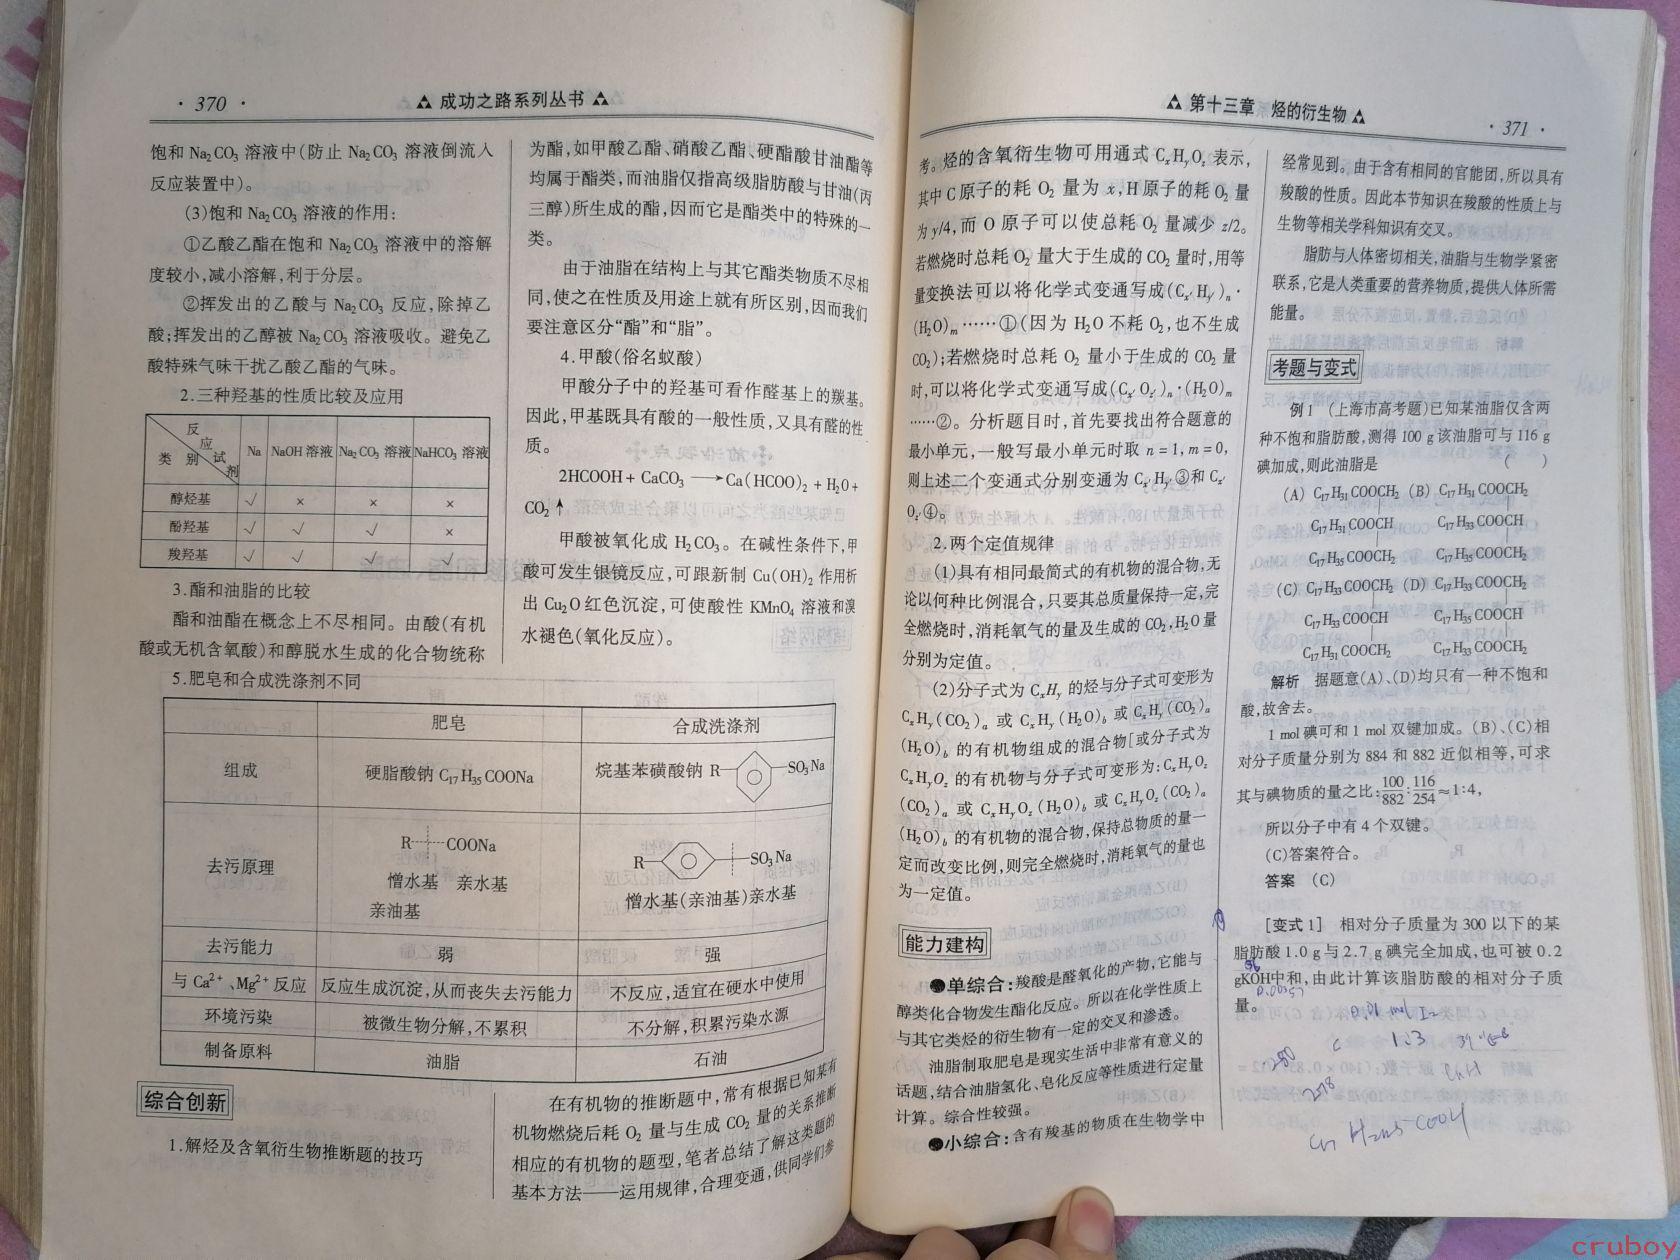 · 370 ·
成功之路系列丛书
饱和 Na₂CO₃ 溶液中(防止 Na₂CO₃ 溶液倒流入
反应装置中)。
(3)饱和 Na₂CO₃ 溶液的作用:
①乙酸乙酯在饱和 Na₂CO₃ 溶液中的溶解
度较小,减小溶解,利于分层。
②挥发出的乙酸与 Na₂CO₃ 反应,除掉乙
酸;挥发出的乙醇被 Na₂CO₃ 溶液吸收。避免乙
酸特殊气味干扰乙酸乙酯的气味。
2.三种羟基的性质比较及应用
反应试剂 类别 Na NaOH 溶液 Na₂CO₃ 溶液 NaHCO₃ 溶液
醇烃基 √ × × ×
酚羟基 √ √ √ ×
羧羟基 √ √ √ √
3.酯和油脂的比较
酯和油酯在概念上不尽相同。由酸(有机
酸或无机含氧酸)和醇脱水生成的化合物统称
为酯,如甲酸乙酯、硝酸乙酯、硬酯酸甘油酯等
均属于酯类,而油脂仅指高级脂肪酸与甘油(丙
三醇)所生成的酯,因而它是酯类中的特殊的一
类。
由于油脂在结构上与其它酯类物质不尽相
同,使之在性质及用途上就有所区别,因而我们
要注意区分“酯”和“脂”。
4.甲酸(俗名蚁酸)
甲酸分子中的羟基可看作醛基上的羰基。
因此,甲基既具有酸的一般性质,又具有醛的性
质。
2HCOOH + CaCO₃ ⟶ Ca(HCOO)₂ + H₂O +
CO₂↑
甲酸被氧化成 H₂CO₃。在碱性条件下,甲
酸可发生银镜反应,可跟新制 Cu(OH)₂ 作用析
出 Cu₂O 红色沉淀,可使酸性 KMnO₄ 溶液和溴
水褪色(氧化反应)。
5.肥皂和合成洗涤剂不同
肥皂 合成洗涤剂
组成 硬脂酸钠 C₁₇H₃₅COONa 烷基苯磺酸钠 R— —SO₃Na
去污原理 R——COONa R— —SO₃Na
憎水基 亲水基 憎水基(亲油基)亲水基
亲油基
去污能力 弱 强
与 Ca²⁺、Mg²⁺ 反应 反应生成沉淀,从而丧失去污能力 不反应,适宜在硬水中使用
环境污染 被微生物分解,不累积 不分解,积累污染水源
制备原料 油脂 石油
综合创新
1.解烃及含氧衍生物推断题的技巧
在有机物的推断题中,常有根据已知某有
机物燃烧后耗 O₂ 量与生成 CO₂ 量的关系推断
相应的有机物的题型,笔者总结了解这类题的
基本方法——运用规律,合理变通,供同学们参
第十三章 烃的衍生物
· 371 ·
考。烃的含氧衍生物可用通式 CₓHᵧO_z 表示,
其中 C 原子的耗 O₂ 量为 x,H 原子的耗 O₂ 量
为 y/4,而 O 原子可以使总耗 O₂ 量减少 z/2。
若燃烧时总耗 O₂ 量大于生成的 CO₂ 量时,用等
量变换法可以将化学式变通写成(Cₓ′Hᵧ′)ₙ·
(H₂O)ₘ……①(因为 H₂O 不耗 O₂,也不生成
CO₂);若燃烧时总耗 O₂ 量小于生成的 CO₂ 量
时,可以将化学式变通写成(Cₓ′O_z′)ₙ·(H₂O)ₘ
……②。分析题目时,首先要找出符合题意的
最小单元,一般写最小单元时取 n=1,m=0,
则上述二个变通式分别变通为 Cₓ′Hᵧ′③和 Cₓ′
O_z′④。
2.两个定值规律
(1)具有相同最简式的有机物的混合物,无
论以何种比例混合,只要其总质量保持一定,完
全燃烧时,消耗氧气的量及生成的 CO₂,H₂O 量
分别为定值。
(2)分子式为 CₓHᵧ 的烃与分子式可变形为
CₓHᵧ(CO₂)ₐ 或 CₓHᵧ(H₂O)_b 或 CₓHᵧ(CO₂)ₐ
(H₂O)_b 的有机物组成的混合物[或分子式为
CₓHᵧO_z 的有机物与分子式可变形为:CₓHᵧO_z
(CO₂)ₐ 或 CₓHᵧO_z(H₂O)_b 或 CₓHᵧO_z(CO₂)ₐ
(H₂O)_b 的有机物的混合物,保持总物质的量一
定而改变比例,则完全燃烧时,消耗氧气的量也
为一定值。
能力建构
●单综合:羧酸是醛氧化的产物,它能与
醇类化合物发生酯化反应。所以在化学性质上
与其它类烃的衍生物有一定的交叉和渗透。
油脂制取肥皂是现实生活中非常有意义的
话题,结合油脂氢化、皂化反应等性质进行定量
计算。综合性较强。
●小综合:含有羧基的物质在生物学中
经常见到。由于含有相同的官能团,所以具有
羧酸的性质。因此本节知识在羧酸的性质上与
生物等相关学科知识有交叉。
脂肪与人体密切相关,油脂与生物学紧密
联系,它是人类重要的营养物质,提供人体所需
能量。
考题与变式
例 1 (上海市高考题)已知某油脂仅含两
种不饱和脂肪酸,测得 100 g 该油脂可与 116 g
碘加成,则此油脂是 ( )
(A) C₁₇H₃₁COOCH₂ (B) C₁₇H₃₁COOCH₂
C₁₇H₃₁COOCH C₁₇H₃₃COOCH
C₁₇H₃₅COOCH₂ C₁₇H₃₅COOCH₂
(C) C₁₇H₃₃COOCH₂ (D) C₁₇H₃₃COOCH₂
C₁₇H₃₃COOCH C₁₇H₃₅COOCH
C₁₇H₃₁COOCH₂ C₁₇H₃₃COOCH₂
解析 据题意(A)、(D)均只有一种不饱和
酸,故舍去。
1 mol 碘可和 1 mol 双键加成。(B)、(C)相
对分子质量分别为 884 和 882 近似相等,可求
其与碘物质的量之比:100/882:116/254≈1:4,
所以分子中有 4 个双键。
(C)答案符合。
答案 (C)
[变式 1] 相对分子质量为 300 以下的某
脂肪酸 1.0 g 与 2.7 g 碘完全加成,也可被 0.2
gKOH中和,由此计算该脂肪酸的相对分子质
量。
0.01 mol I₂
1:3
280
278
cruboy